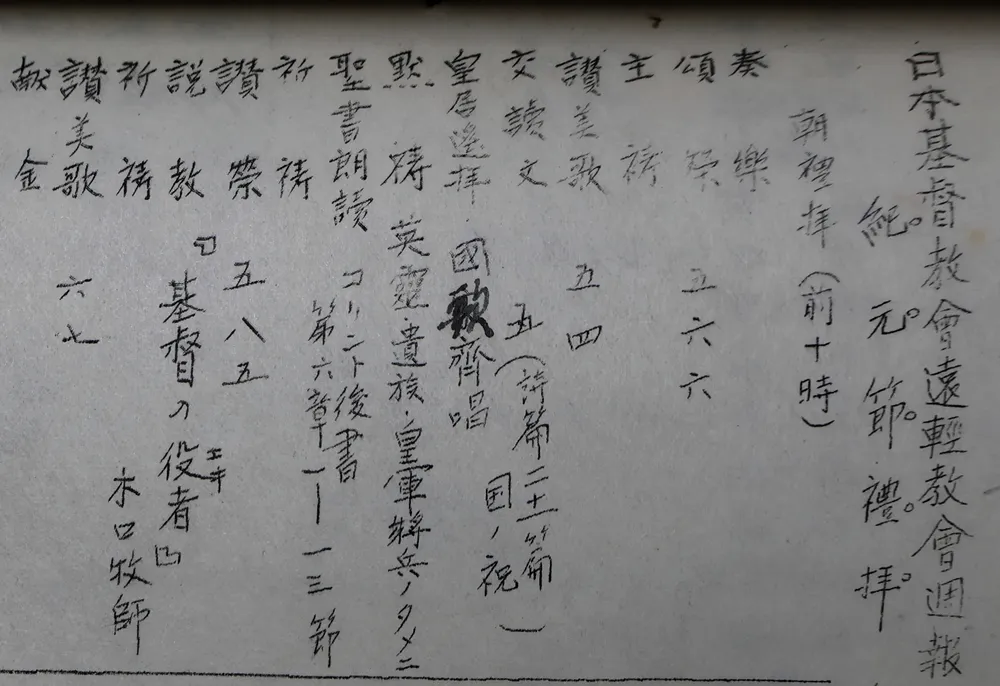 日本基督教會遠輕教會週報
紀。元。節。禮。拝。
朝禮拝（前十時）
奏樂
頌榮 五六六
主祷
讃美歌 五四
交讀文 五（詩篇二十一篇
国ノ祝）
皇居遙拝 國歌齊唱
默祷 英靈・遺族・皇軍将兵ノタメニ
聖書朗讀 コリント後書
第六章一－一三節
祈祷
讃榮 五八五
説教 『基督の役者』
エキ
木口牧師
祈祷
讃美歌 六七
献金